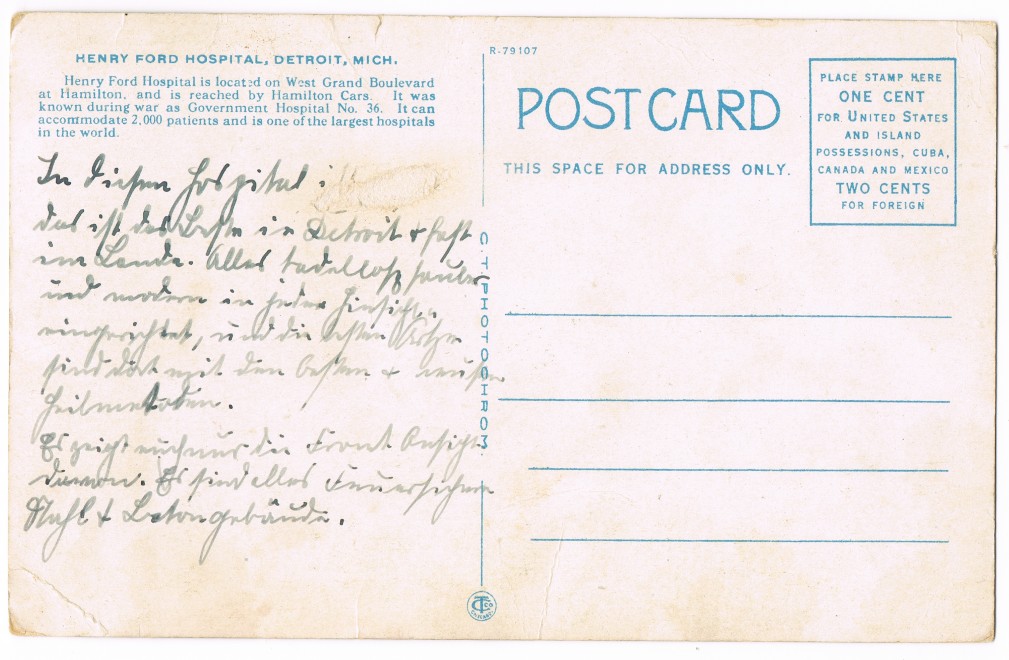 HENRY FORD HOSPITAL, DETROIT, MICH.
Henry Ford Hospital is located on West Grand Boulevard
at Hamilton, and is reached by Hamilton Cars. It was
known during war as Government Hospital No. 36. It can
accommodate 2,000 patients and is one of the largest hospitals
in the world.
In diesem Hospital
das ist das Beste in Detroit & fast
im Lande. Alles tadellos sauber
und modern in jeder Hinsicht
eingerichtet, und die besten Ärzte
sind dort mit den besten &
Heilmetoden.
Es zeigt euch nur die Front Ansicht
davon. Es sind alles Feuersichere
Stahl & Betongebäude.
R-79107
POST CARD
THIS SPACE FOR ADDRESS ONLY.
PLACE STAMP HERE
ONE CENT
FOR UNITED STATES
AND ISLAND
POSSESSIONS, CUBA,
CANADA AND MEXICO
TWO CENTS
FOR FOREIGN
C. T. PHOTOCHROM